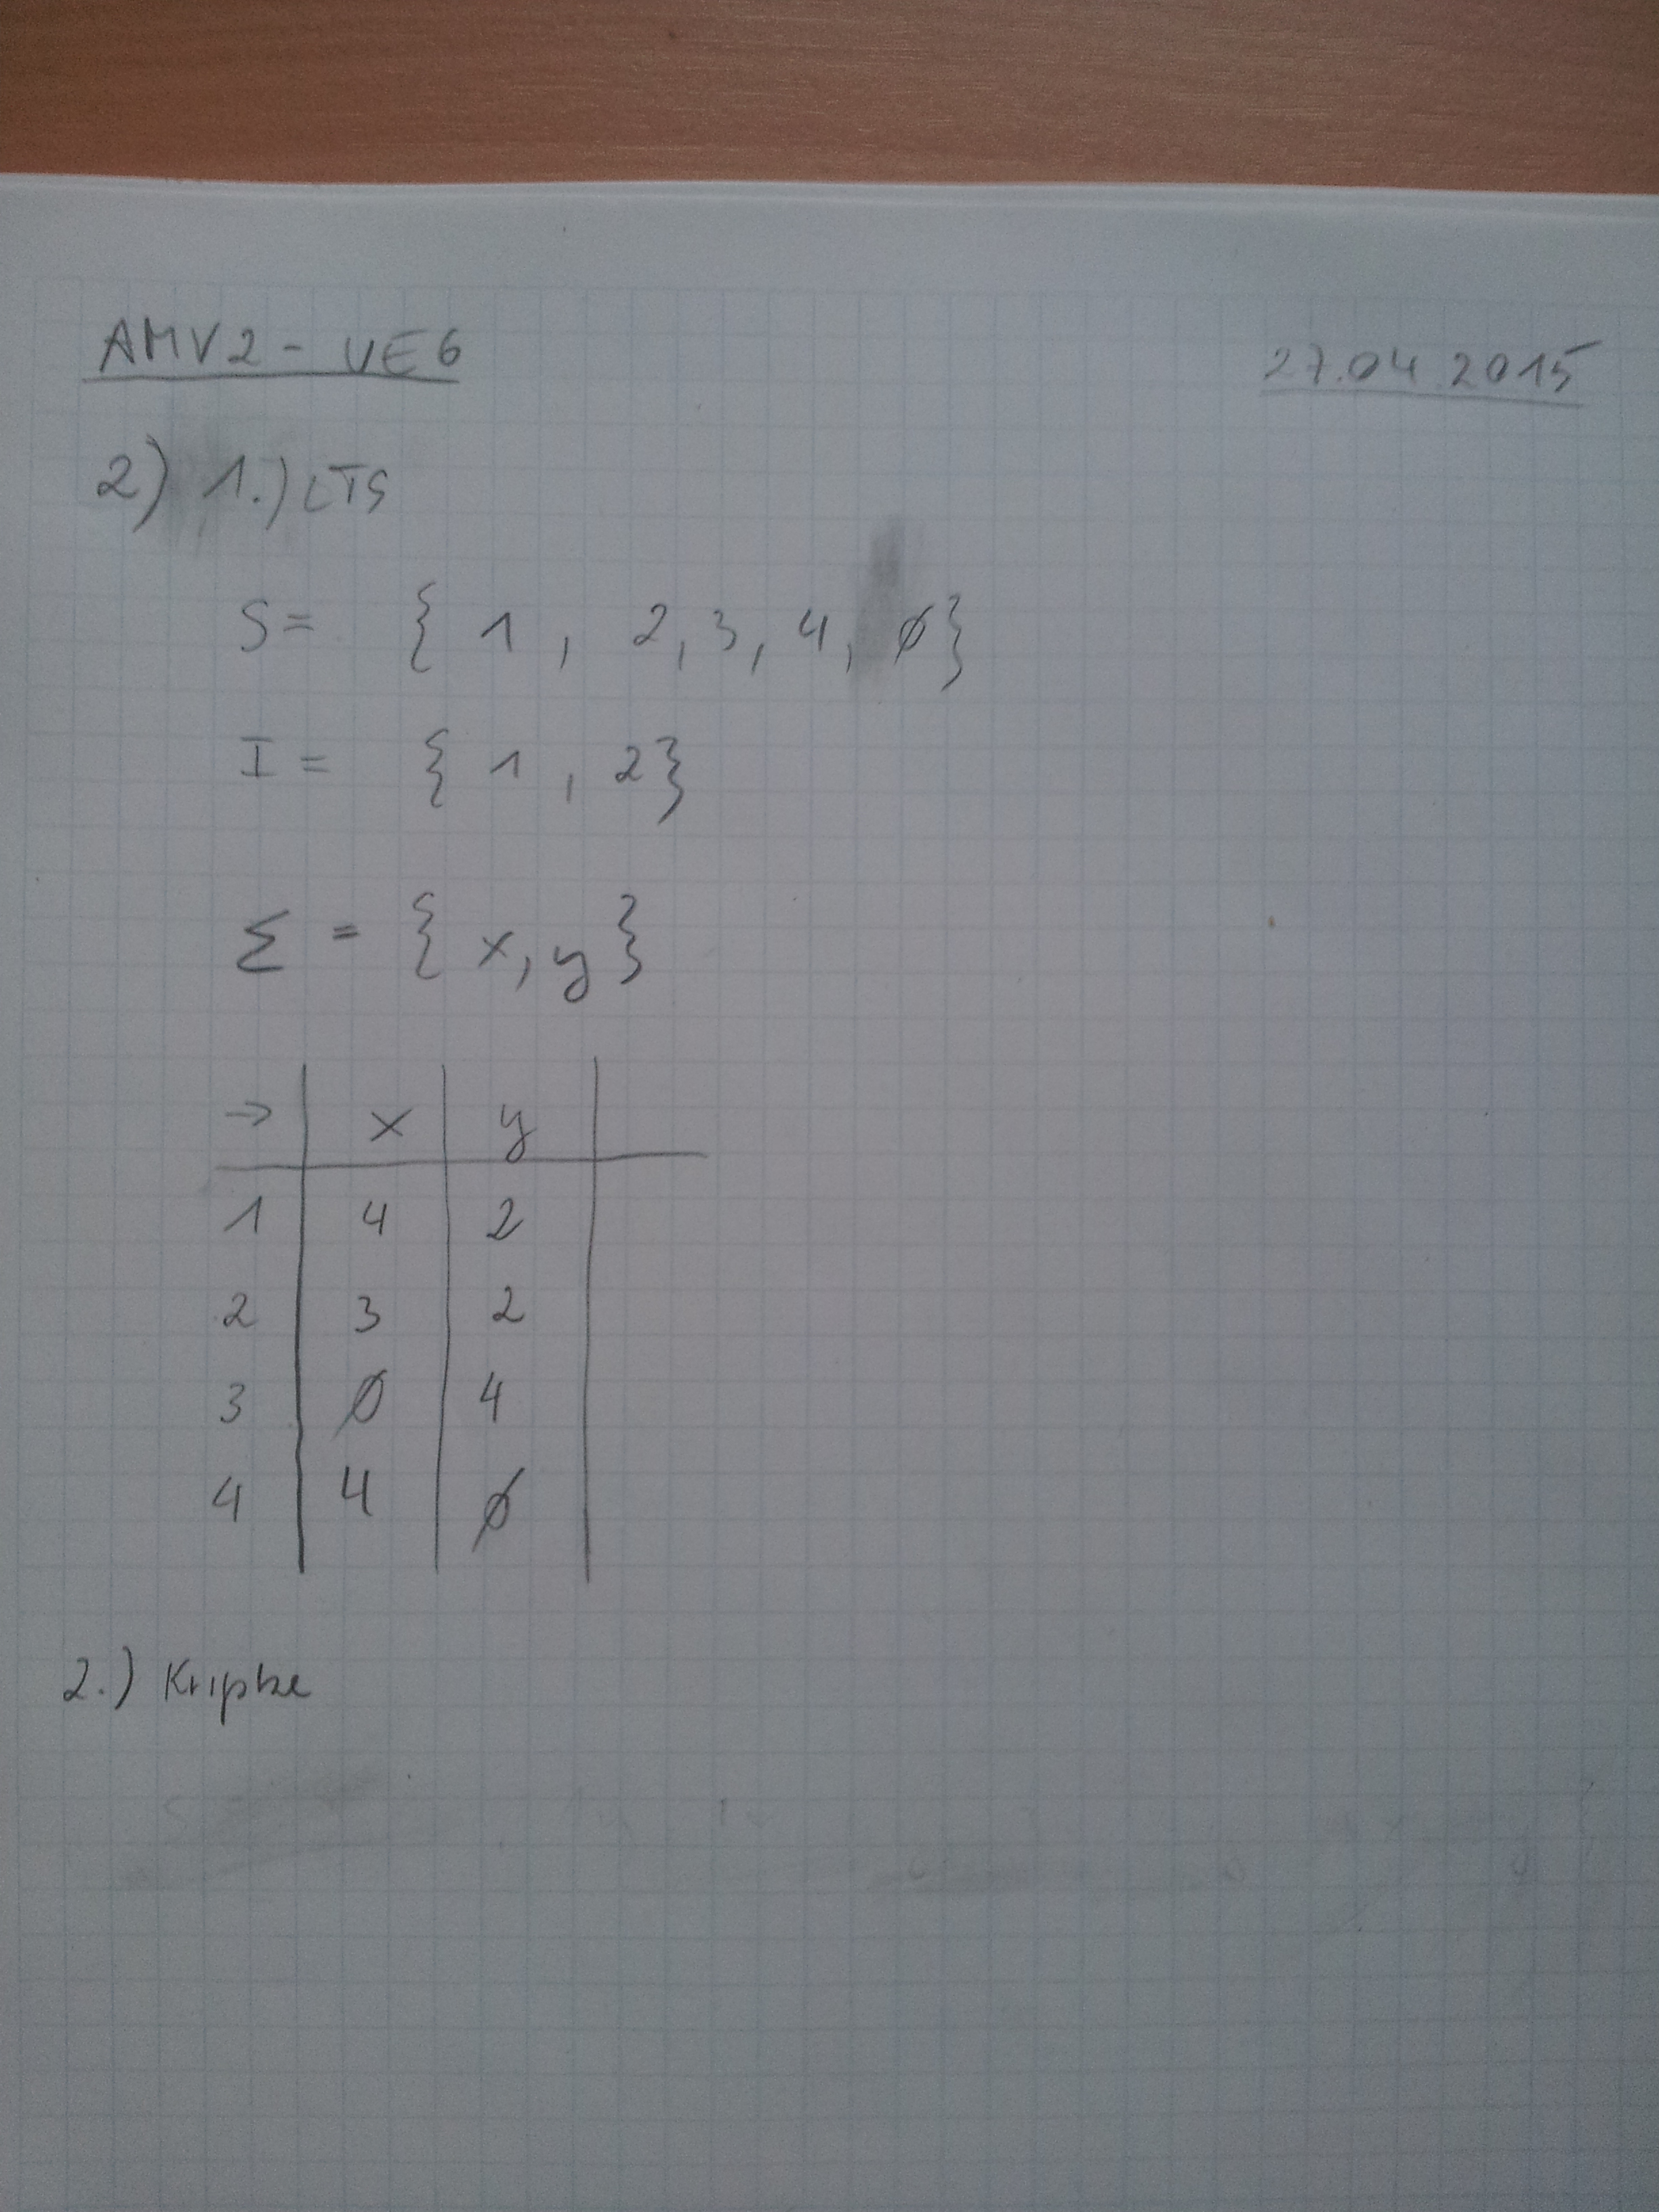 AMV2 - VE6 27.04.2015
2) 1.) LTS
S = { 1, 2, 3, 4, ∅ }
I = { 1, 2 }
Σ = { x, y }
→ x y
1 4 2
2 3 2
3 ∅ 4
4 4 ∅
2.) Kripke